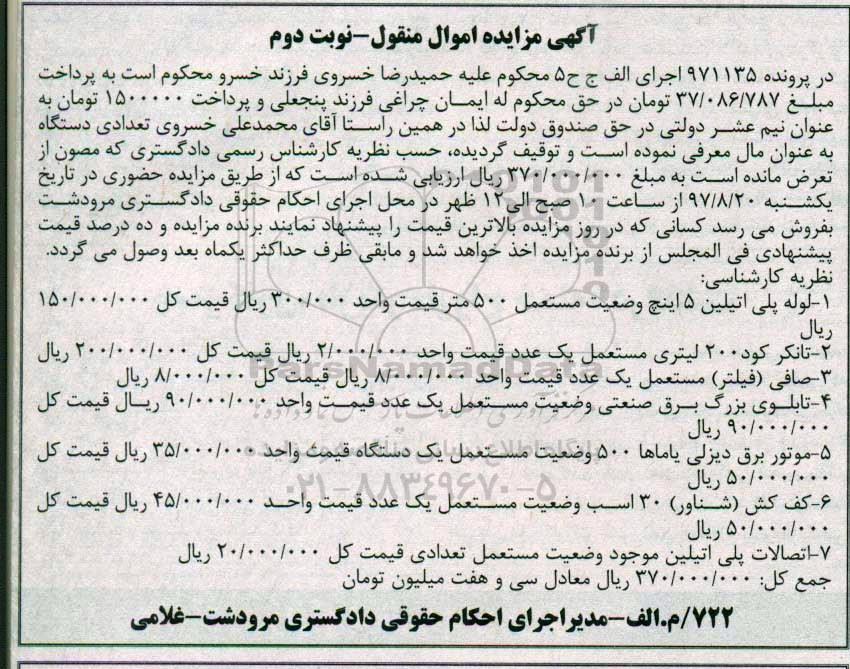 آگهی مزایده اموال منقول-نوبت دوم
در پرونده ۹۷۱۱۳۵ اجرای الف ج ح۵ محکوم علیه حمیدرضا خسروی فرزند خسرو محکوم است به پرداخت
مبلغ ۳۷/۰۸۶/۷۸۷ تومان در حق محکوم له ایمان چراغی فرزند پنجعلی و پرداخت ۱۵۰۰۰۰۰ تومان به
عنوان نیم عشر دولتی در حق صندوق دولت لذا در همین راستا آقای محمدعلی خسروی تعدادی دستگاه
به عنوان مال معرفی نموده است و توقیف گردیده، حسب نظریه کارشناس رسمی دادگستری که مصون از
تعرض مانده است به مبلغ ۳۷۰/۰۰۰/۰۰۰ ریال ارزیابی شده است که از طریق مزایده حضوری در تاریخ
یکشنبه ۹۷/۸/۲۰ از ساعت ۱۰ صبح الی۱۲ ظهر در محل اجرای احکام حقوقی دادگستری مرودشت
بفروش می رسد کسانی که در روز مزایده بالاترین قیمت را پیشنهاد نمایند برنده مزایده و ده درصد قیمت
پیشنهادی فی المجلس از برنده مزایده اخذ خواهد شد و مابقی ظرف حداکثر یکماه بعد وصول می گردد.
نظریه کارشناسی:
۱-لوله پلی اتیلین ۵ اینچ وضعیت مستعمل ۵۰۰ متر قیمت واحد ۳۰۰/۰۰۰ ریال قیمت کل ۱۵۰/۰۰۰/۰۰۰
ریال
۲-تانکر کود۲۰۰ لیتری مستعمل یک عدد قیمت واحد ۲/۰۰۰/۰۰۰ ریال قیمت کل ۲۰۰/۰۰۰/۰۰۰ ریال
۳-صافی (فیلتر) مستعمل یک عدد قیمت واحد ۸/۰۰۰/۰۰۰ ریال قیمت کل ۸/۰۰۰/۰۰۰ ریال
۴-تابلوی بزرگ برق صنعتی وضعیت مستعمل یک عدد قیمت واحد ۹۰/۰۰۰/۰۰۰ ریال قیمت کل
۹۰/۰۰۰/۰۰۰ ریال
۵-موتور برق دیزلی یاماها ۵۰۰ وضعیت مستعمل یک دستگاه قیمت واحد ۳۵/۰۰۰/۰۰۰ ریال قیمت کل
۵۰/۰۰۰/۰۰۰ ریال
۶-کف کش (شناور) ۳۰ اسب وضعیت مستعمل یک عدد قیمت واحد ۴۵/۰۰۰/۰۰۰ ریال قیمت کل
۵۰/۰۰۰/۰۰۰ ریال
۷-اتصالات پلی اتیلین موجود وضعیت مستعمل تعدادی قیمت کل ۲۰/۰۰۰/۰۰۰ ریال
جمع کل: ۳۷۰/۰۰۰/۰۰۰ ریال معادل سی و هفت میلیون تومان
۷۲۲/م.الف-مدیراجرای احکام حقوقی دادگستری مرودشت-غلامی
ParsNamadData
۰۲۱-۸۸۳۴۹۶۷۰-۵